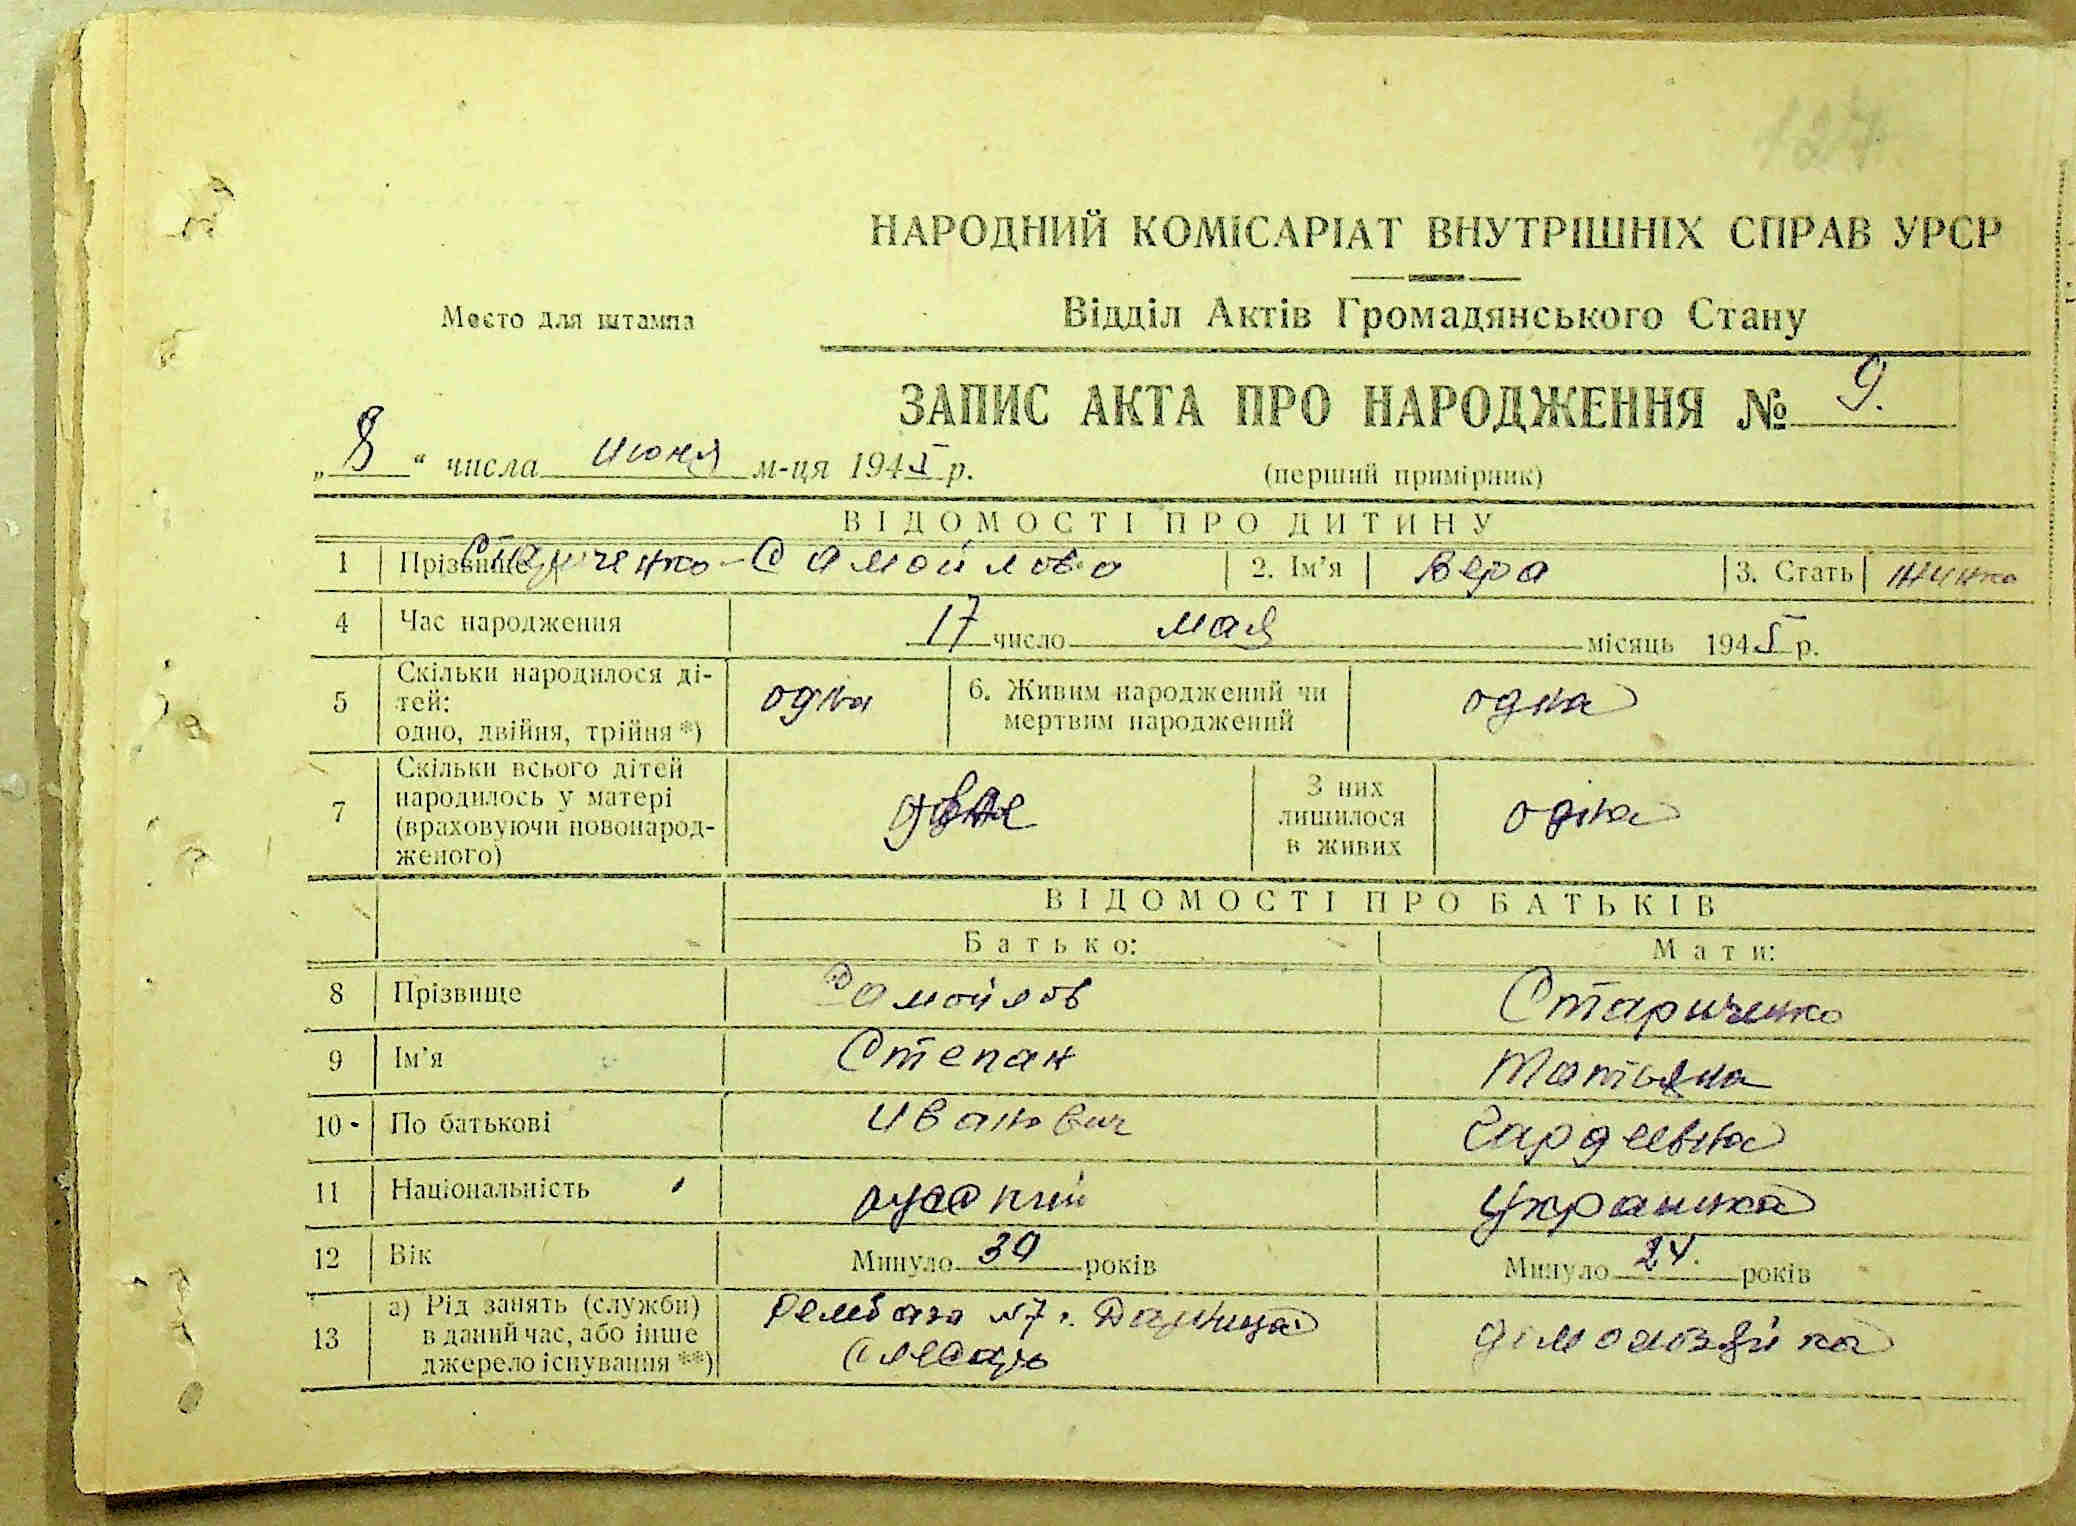 127
НАРОДНИЙ КОМІСАРІАТ ВНУТРІШНІХ СПРАВ УРСР
Место для штампа
Відділ Актів Громадянського Стану
ЗАПИС АКТА ПРО НАРОДЖЕННЯ № 9.
„8“ числа июня м-ця 1945 р.
(перший примірник)
ВІДОМОСТІ ПРО ДИТИНУ
1 Прізвище Стариченко-Самойлова 2. Ім’я Вера 3. Стать
4 Час народження 17 число мая місяць 1945 р.
5 Скільки народилося ді-
тей:
одно, двійня, трійня *) одна 6. Живим народжений чи
мертвим народжений одна
7 Скільки всього дітей
народилось у матері
(враховуючи новонарод-
женого)
З них
лишилося
в живих одна
ВІДОМОСТІ ПРО БАТЬКІВ
Батько: Мати:
8 Прізвище Самойлов Стариченко
9 Ім’я Степан Татьяна
10 По батькові Иванович Гардеевна
11 Національність руский украинка
12 Вік Минуло 39 років Минуло 24. років
13 а) Рід занять (службы)
в даний час, або інше
джерело існування **) Рембаза №7 г. Дарница
слесарь
домохозяйка